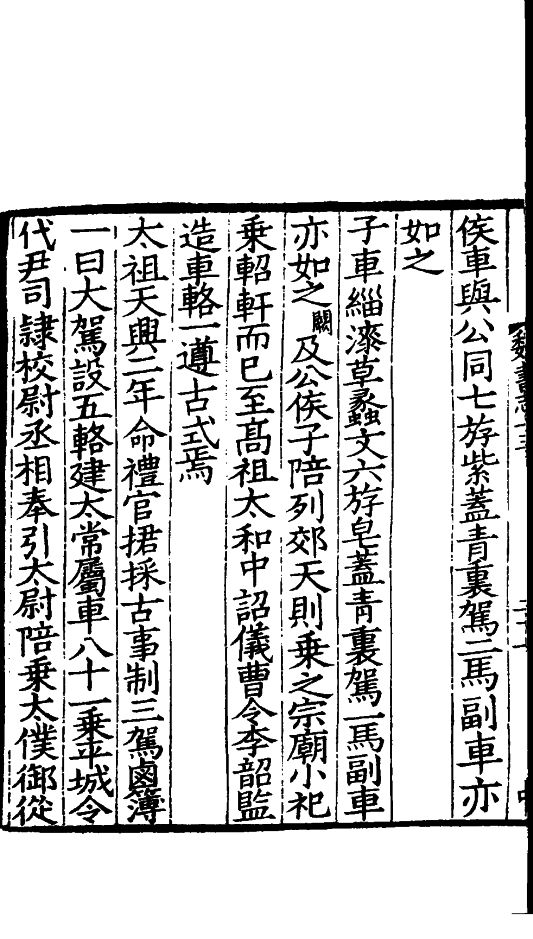 侯車與公同七斿紫蓋青裏駕二馬副車亦
如之
子車緇漆草蠡文六斿皂蓋青裏駕一馬副車
亦如之闕及公侯子陪列郊天則乗之宗廟小祀
乗軺軒而已至髙祖太和中詔儀曹令李韶監
造車輅一遵古式焉
太祖天興二年命禮官捃採古事制三駕鹵簿
一曰大駕設五輅建太常屬車八十一乗平城令
代尹司隸校尉丞相奉引太尉陪乗太僕御從